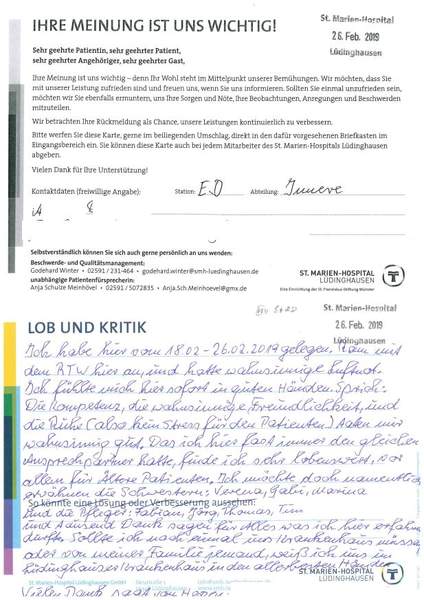 IHRE MEINUNG IST UNS WICHTIG!
St. Marien-Hospital
26. Feb. 2019
Lüdinghausen
Sehr geehrte Patientin, sehr geehrter Patient,
sehr geehrter Angehöriger, sehr geehrter Gast,
Ihre Meinung ist uns wichtig – denn Ihr Wohl steht im Mittelpunkt unserer Bemühungen. Wir möchten, dass Sie
mit unserer Leistung zufrieden sind und freuen uns, wenn Sie uns informieren. Sollten Sie einmal unzufrieden sein,
möchten wir Sie ebenfalls ermuntern, uns Ihre Sorgen und Nöte, Ihre Beobachtungen, Anregungen und Beschwerden
mitzuteilen.
Wir betrachten Ihre Rückmeldung als Chance, unsere Leistungen kontinuierlich zu verbessern.
Bitte werfen Sie diese Karte, gerne im beiliegenden Umschlag, direkt in den dafür vorgesehenen Briefkasten im
Eingangsbereich ein. Sie können diese Karte auch bei jedem Mitarbeiter des St. Marien-Hospitals Lüdinghausen
abgeben.
Vielen Dank für Ihre Unterstützung!
Kontaktdaten (freiwillige Angabe): Station: E.D Abteilung: Innere
A
Selbstverständlich können Sie sich auch gerne persönlich an uns wenden:
Beschwerde- und Qualitätsmanagement:
Godehard Winter • 02591 / 231-464 • godehard.winter@smh-luedinghausen.de
unabhängige Patientenfürsprecherin:
Anja Schulze Meinhövel • 02591 / 5072835 • Anja.Sch.Meinhoevel@gmx.de
ST. MARIEN-HOSPITAL
LÜDINGHAUSEN
Eine Einrichtung der St. Franziskus-Stiftung Münster
St. Marien-Hospital
26. Feb. 2019
Lüdinghausen
LOB UND KRITIK
Ich habe hier vom 18.02-26.02.2019 gelegen. Kam mit
dem RTW hier an, und hatte wahnsinnige Luftnot.
Ich fühlte mich hier sofort in guten Händen. Sprich:
Die Kompetenz, die wahnsinnige Freundlichkeit, und
die Ruhe (also kein Stress für den Patienten) taten mir
wahnsinnig gut. Das ich hier fast immer den gleichen
Ansprechpartner hatte, finde ich sehr lobenswert, vor
allem für Ältere Patienten. Ich möchte doch namentlich
erwähnen die Schwestern: Verena, Gabi, Marina
So könnte eine Lösung oder Verbesserung aussehen:
und die Pfleger: Fabian, Jörg, Thomas, Tim
und Tausend Dank sagen für Alles was ich hier erfahren
durfte. Sollte ich noch einmal ins Krankenhaus müssen
oder von meiner Familie jemand, weiß ich uns im
Lüdinghauser Krankenhaus in den allerbesten Händen
St. Marien-Hospital Lüdinghausen GmbH
ST. MARIEN-HOSPITAL
LÜDINGHAUSEN
Vielen Dank